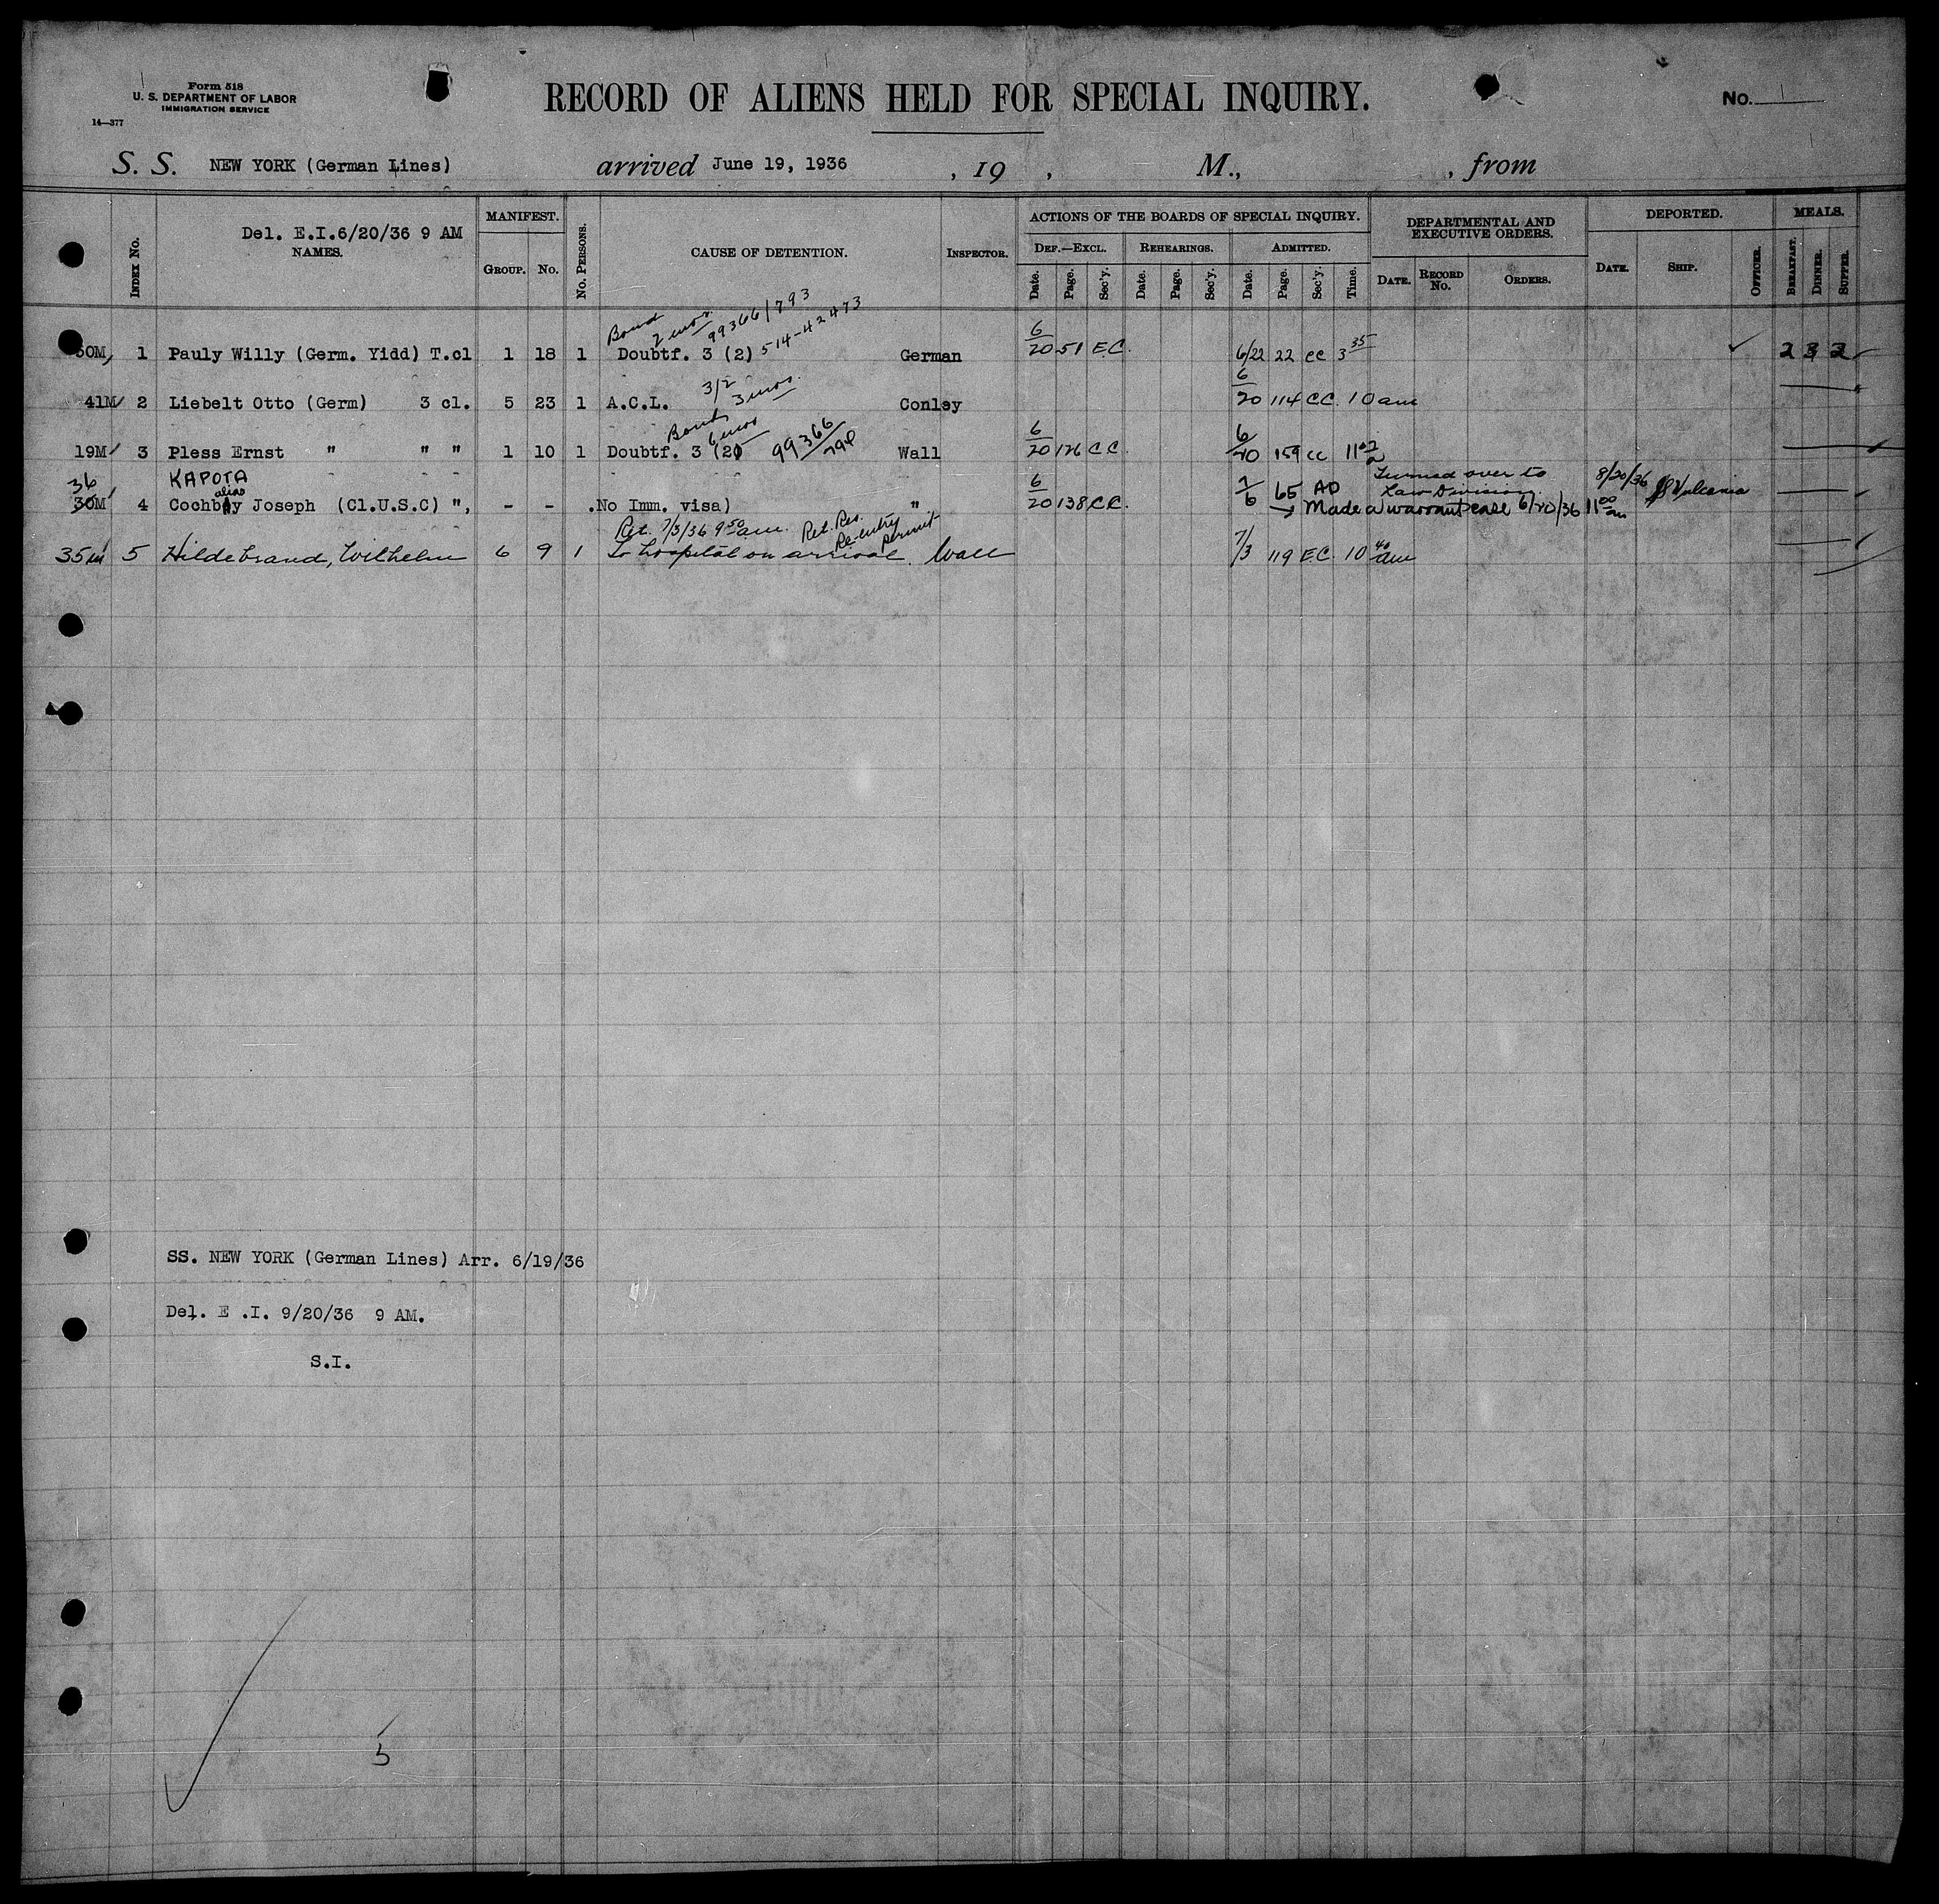 Form 518
U. S. DEPARTMENT OF LABOR
IMMIGRATION SERVICE
14—377
RECORD OF ALIENS HELD FOR SPECIAL INQUIRY.
No. 1
S. S. NEW YORK (German Lines) arrived June 19, 1936 , 19 , M., , from
Del. E.I.6/20/36 9 AM
INDEX No. NAMES. MANIFEST. GROUP. No. No. PERSONS. CAUSE OF DETENTION. INSPECTOR.
ACTIONS OF THE BOARDS OF SPECIAL INQUIRY. DEPARTMENTAL AND EXECUTIVE ORDERS. DEPORTED. MEALS.
DEF.—EXCL. REHEARINGS. ADMITTED.
Date. Page. Sec'y. Date. Page. Sec'y. Date. Page. Sec'y. Time. DATE. RECORD No. ORDERS. DATE. SHIP. OFFICER. BREAKFAST. DINNER. SUPPER.
Bond 2 mos. 99366/793
514-42473
50M 1 Pauly Willy (Germ. Yidd) T.cl 1 18 1 Doubtf. 3 (2) German 6/20 51 E.C. 6/22 22 CC 3 35 2 3 2
3/2 3 mos.
41M 2 Liebelt Otto (Germ) 3 cl. 5 23 1 A.C.L. Conley 6/20 114 CC. 10 am
Bond 6 mos 99366/794
19M 3 Pless Ernst " " " 1 10 1 Doubtf. 3 (2) Wall 6/20 126 CC. 159 CC
36 KAPOTA
alias
30M 4 Cochboy Joseph (Cl.U.S.C) ", - - .No Imm. visa) " 6/20 138 CC. 7/6 65 AD Turned over to Law Division. 8/20/36 SS Vulcania
→ Made a warrant case 6/20/36 11 00 am
Ret. 7/3/36 9 50 am. Ret. Res. Re-entry Permit
35M 5 Hildebrand, Wilhelm 6 9 1 To hospital on arrival. Wall 7/3 119 E.C. 10 40 am
SS. NEW YORK (German Lines) Arr. 6/19/36
Del. E .I. 9/20/36 9 AM.
S.I.
5